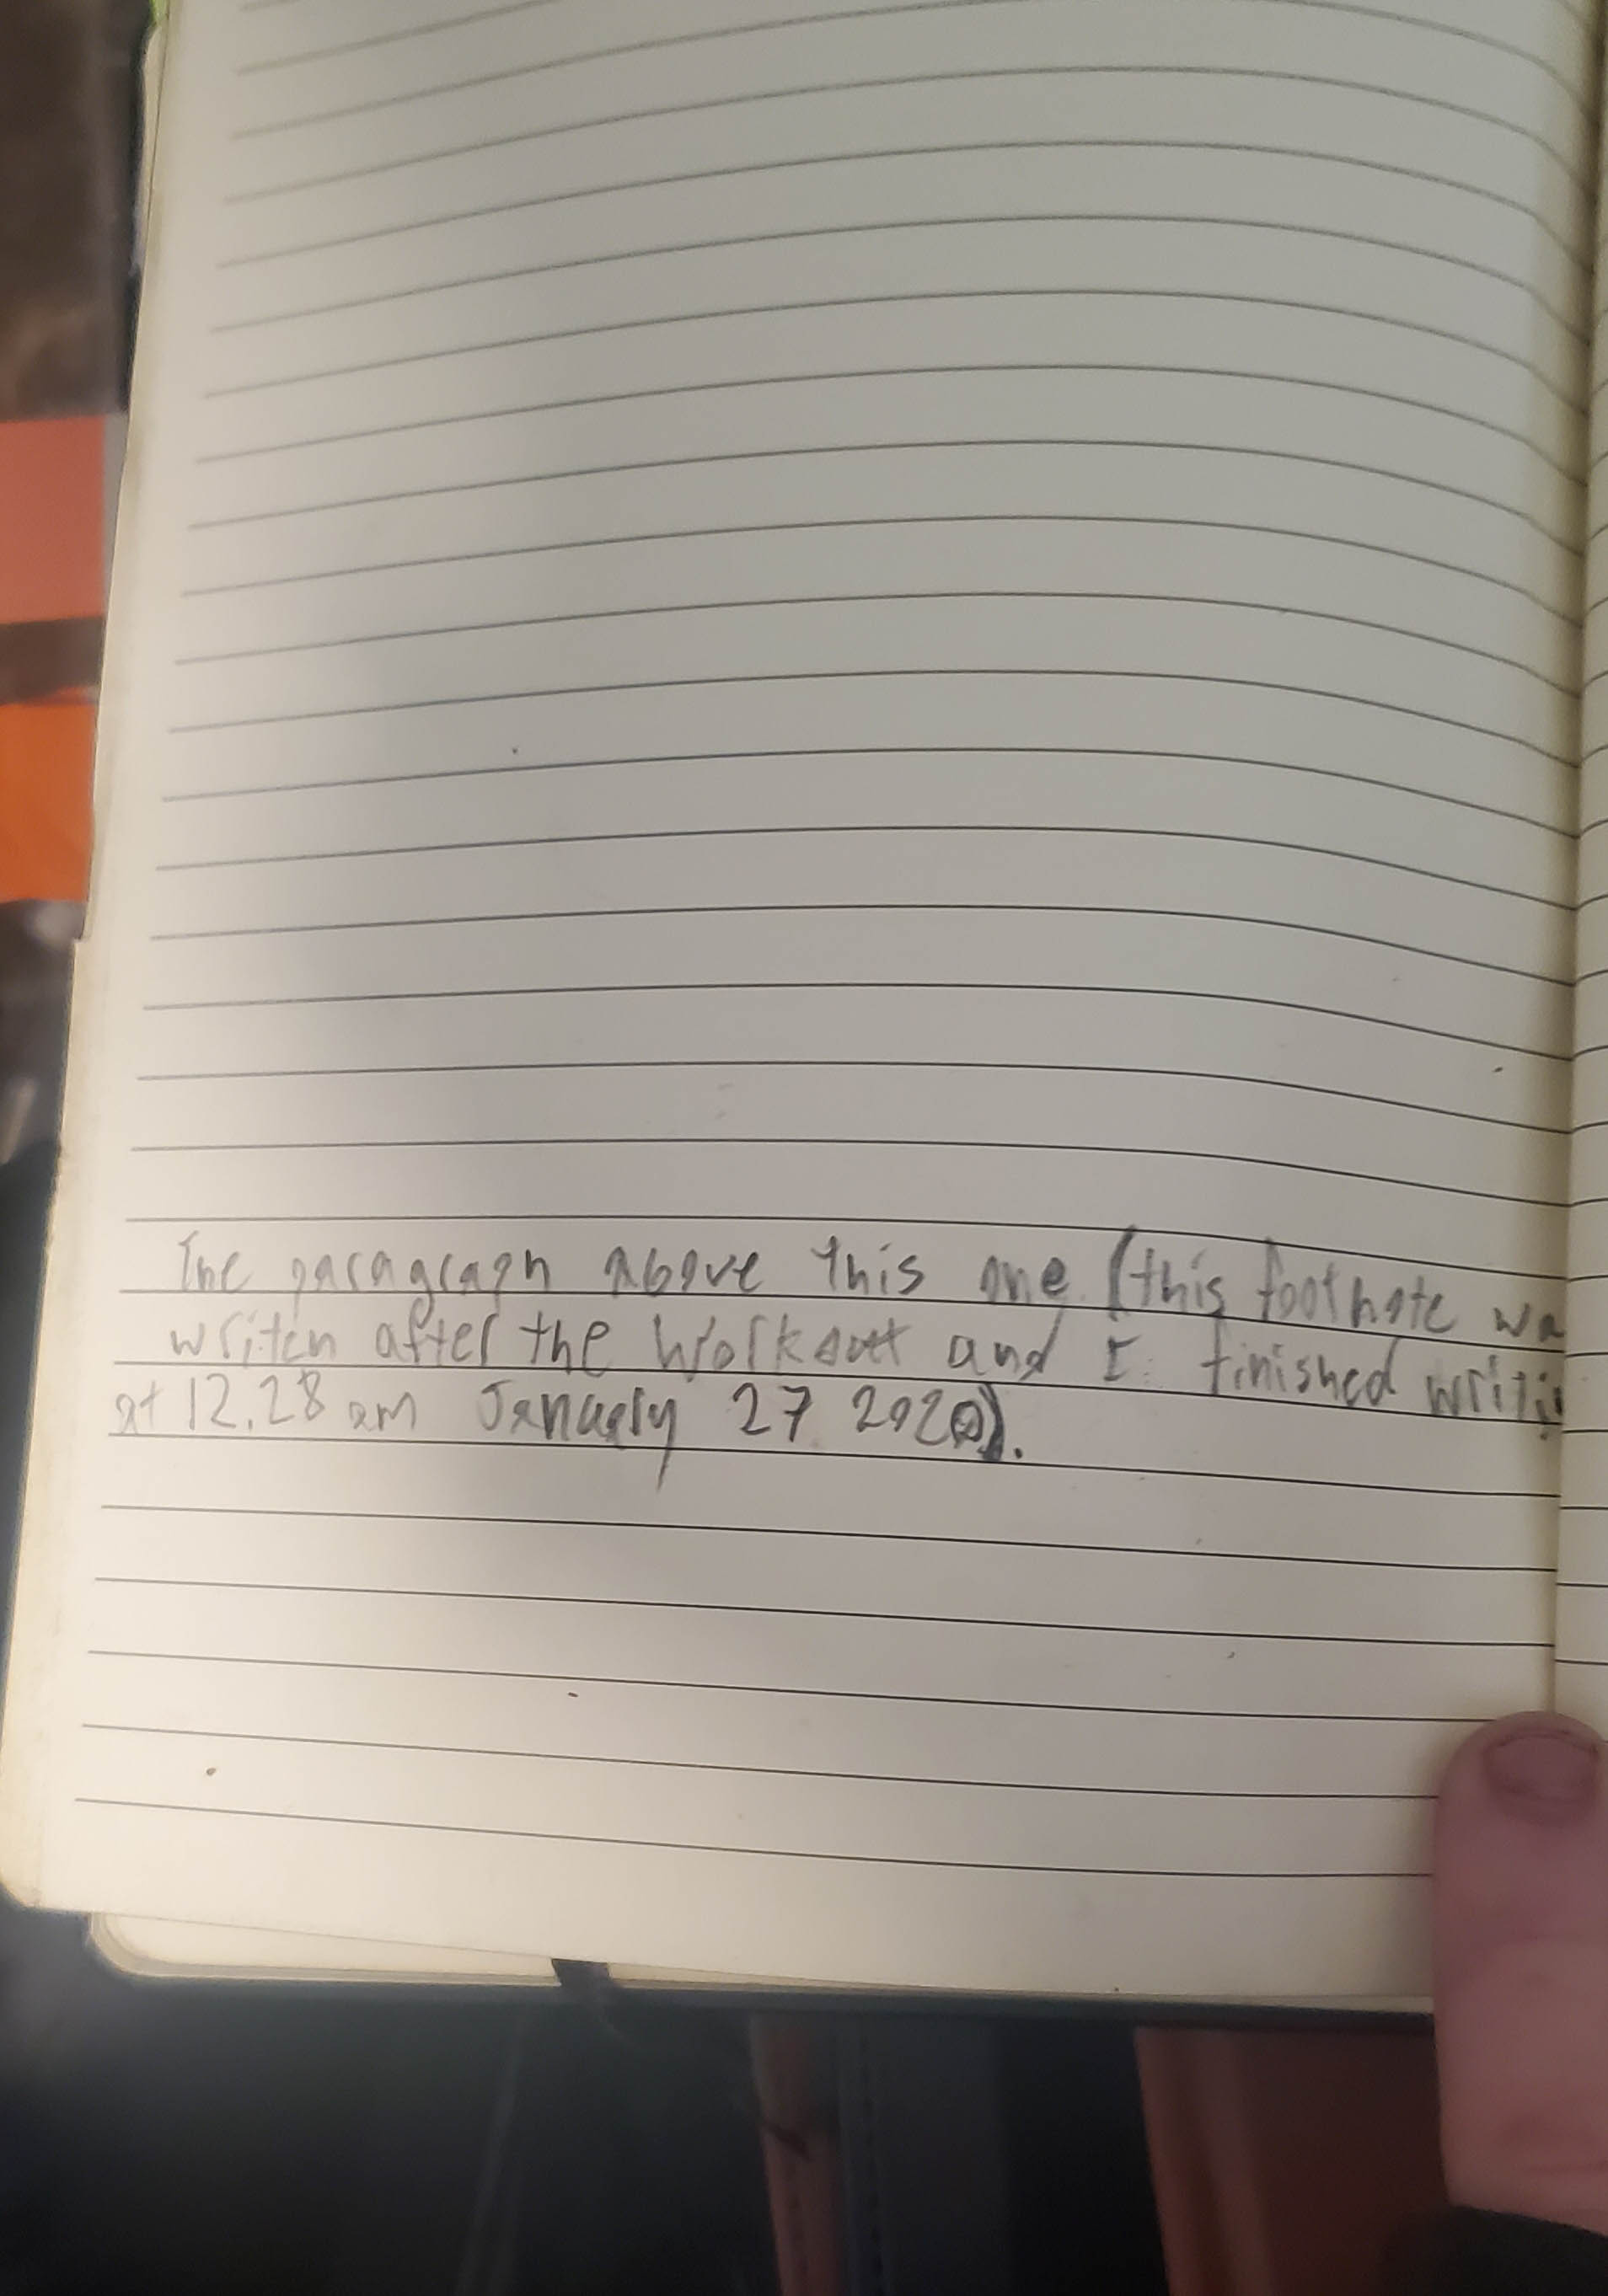 The paragraph above this one (this footnote wa
writen after the workout and I finished writi
at 12.28 am January 27 2020).